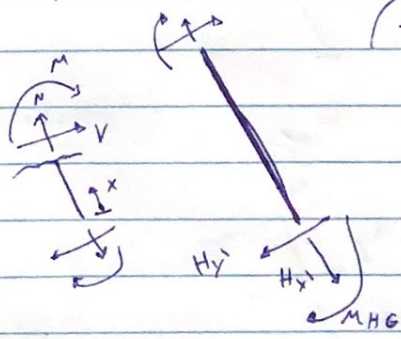 M
N
V
x
Hy'
Hx'
MHG